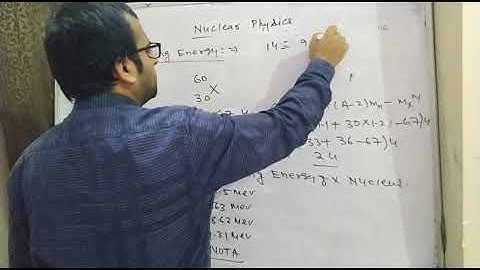 Nuclear Physics
ng Energy :⇒ 14 = 9
60
X
30
(A-Z)Mn - MxN
+ 30×1.2 - 67)4
33 + 36 - 67)4
24
Energy of X Nucleus
.5 Mev
.63 Mev
.62 Mev
.31 Mev
NOTA